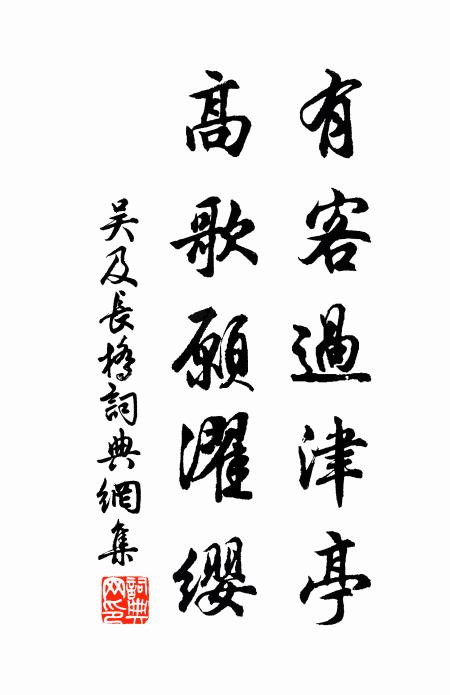 有客過津亭
高歌願濯纓
吴及長橋詞典網集
詞典
网印